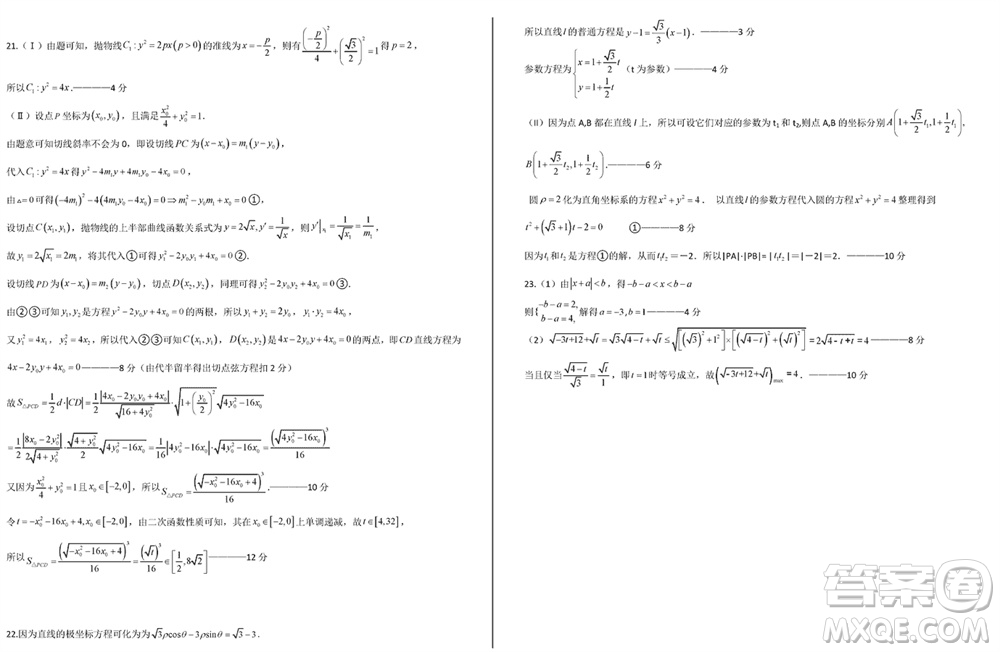 21.(Ⅰ)由题可知，抛物线C₁:y²=2px(p>0)的准线为x=-p/2，则有(-p/2)²/4+(√3/2)²=1得p=2，
所以C₁:y²=4x.————4分
(Ⅱ)设点P坐标为(x₀,y₀)，且满足x₀²/4+y₀²=1.
由题意可知切线斜率不会为0，即设切线PC为(x-x₀)=m₁(y-y₀)，
代入C₁:y²=4x得y²-4m₁y+4m₁y₀-4x₀=0，
由△=0可得(-4m₁)²-4(4m₁y₀-4x₀)=0⇒m₁²-y₀m₁+x₀=0①，
设切点C(x₁,y₁)，抛物线的上半部曲线函数关系式为y=2√x,y′=1/√x，则y′|ₓ₁=1/√x₁=1/m₁，
故y₁=2√x₁=2m₁，将其代入①可得y₁²-2y₀y₁+4x₀=0②，
设切线PD为(x-x₀)=m₂(y-y₀)，切点D(x₂,y₂)，同理可得y₂²-2y₀y₂+4x₀=0③，
由②③可知y₁,y₂是方程y²-2y₀y+4x₀=0的两根，所以y₁+y₂=2y₀，y₁·y₂=4x₀，
又y₁²=4x₁，y₂²=4x₂，所以代入②③可知C(x₁,y₁)，D(x₂,y₂)是4x-2y₀y+4x₀=0的两点，即CD直线方程为
4x-2y₀y+4x₀=0————8分（由代半留半得出切点弦方程扣2分）
故S△PCD=1/2 d·|CD|=1/2 |4x₀-2y₀y₀+4x₀|/√(16+4y₀²)·√(1+(y₀/2)²)√(4y₀²-16x₀)
=1/2 |8x₀-2y₀²|/(2√(4+y₀²))·√(4+y₀²)/2·√(4y₀²-16x₀)=1/16|4y₀²-16x₀|√(4y₀²-16x₀)=(√(4y₀²-16x₀))³/16
又因为x₀²/4+y₀²=1且x₀∈[-2,0]，所以S△PCD=(√(-x₀²-16x+4))³/16.————10分
令t=-x₀²-16x₀+4,x₀∈[-2,0]，由二次函数性质可知，其在x₀∈[-2,0]上单调递减，故t∈[4,32]，
所以S△PCD=(√(-x₀²-16x+4))³/16=(√t)³/16∈[1/2,8√2]————12分
22.因为直线的极坐标方程可化为为√3ρcosθ-3ρsinθ=√3-3.
所以直线l的普通方程是y-1=√3/3(x-1).————3分
参数方程为{x=1+√3/2 t
y=1+1/2 t（t为参数）————4分
(II)因为点A,B都在直线l上，所以可设它们对应的参数为t₁和t₂,则点A,B的坐标分别A(1+√3/2 t₁,1+1/2 t₁)，
B(1+√3/2 t₂,1+1/2 t₂).————6分
圆ρ=2化为直角坐标系的方程x²+y²=4． 以直线l的参数方程代入圆的方程x²+y²=4整理得到
t²+(√3+1)t-2=0 ①————8分
因为t₁和t₂是方程①的解，从而t₁t₂=-2．所以|PA|·|PB|=|t₁t₂|=|-2|=2.————10分
23.(1)由|x+a|<b，得-b-a<x<b-a
则{-b-a=2,
b-a=4,解得a=-3,b=1————4分
(2)√(-3t+12)+√t=√3√(4-t)+√t≤√([(√3)²+1²]×[(√(4-t))²+(√t)²])=2√(4-t+t)=4————8分
当且仅当√(4-t)/√3=√t/1，即t=1时等号成立，故(√(-3t+12)+√t)max=4.————10分
答案卷